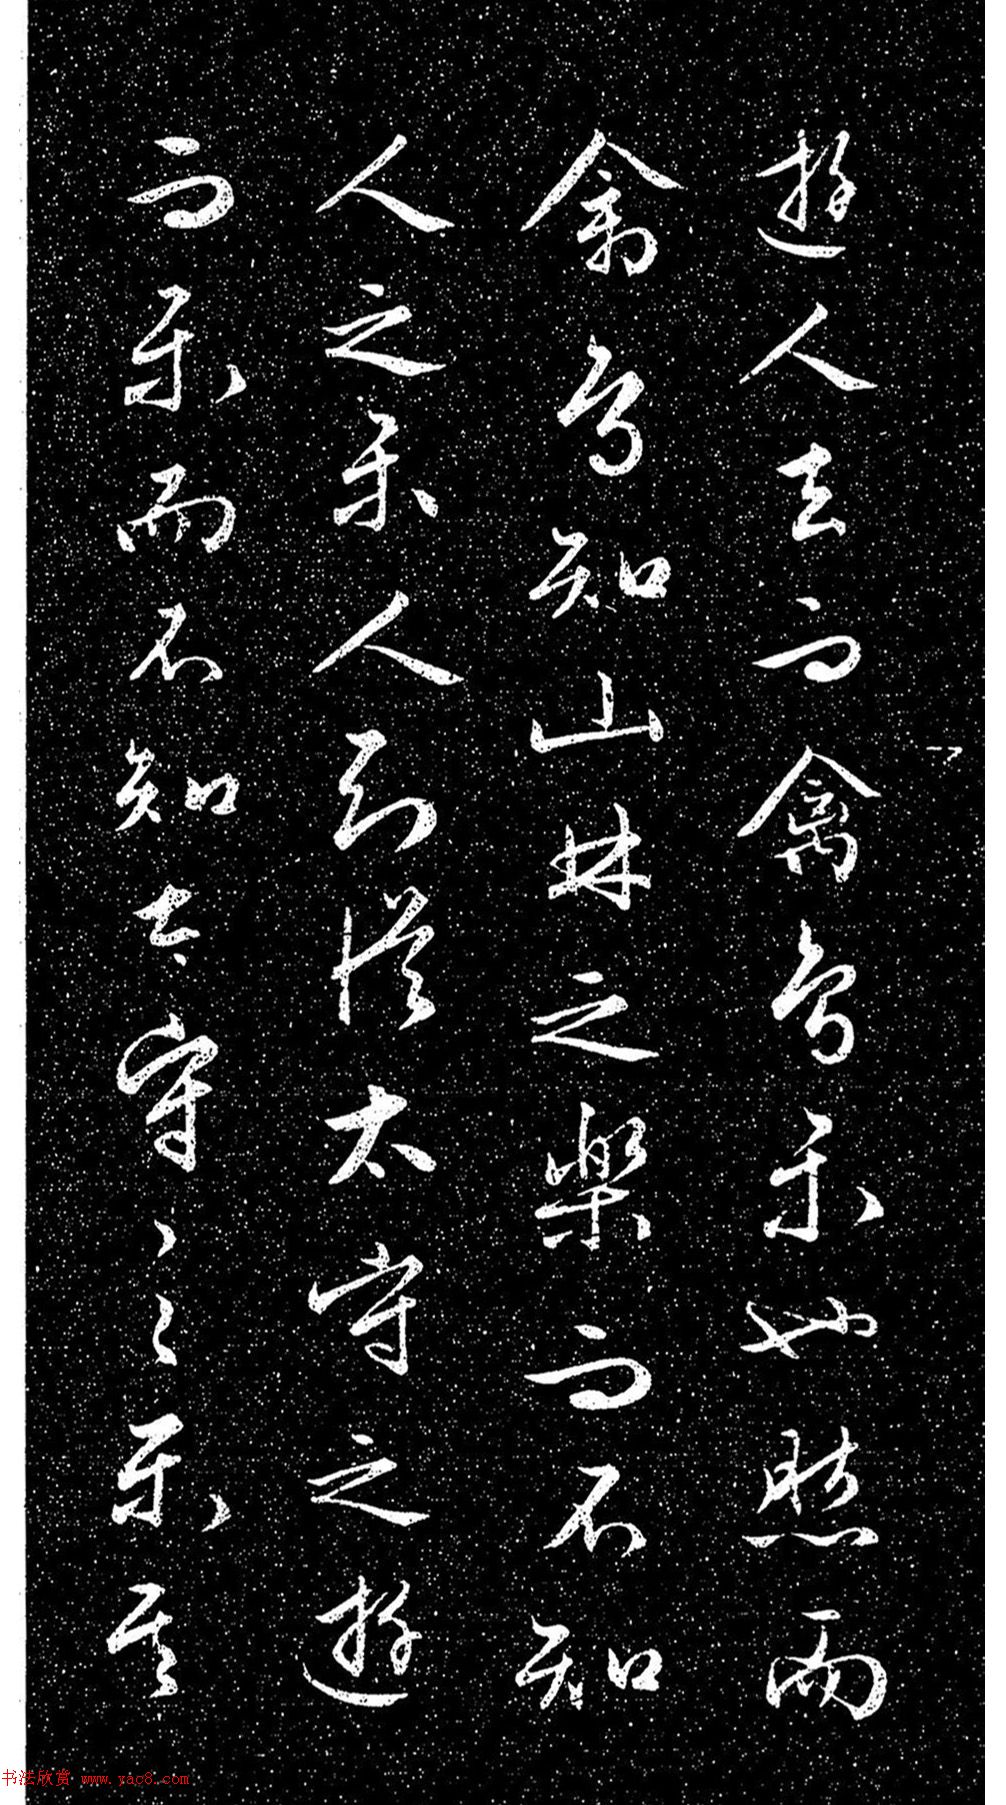 遊人去而禽鳥樂也然而
禽鳥知山林之樂而不知
人之樂人知從太守之遊
而樂而不知太守之之樂其
书法欣赏 www.yac8.com